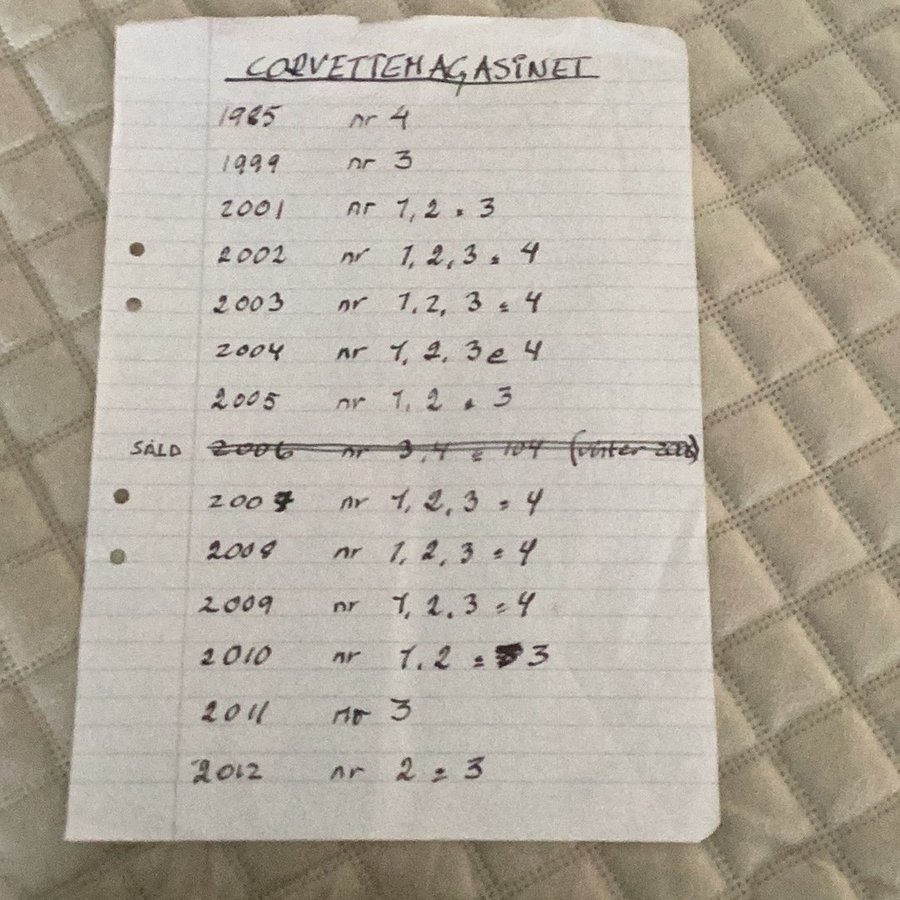 CORVETTEMAGASINET
1985 nr 4
1999 nr 3
2001 nr 1, 2 & 3
2002 nr 1, 2, 3 & 4
2003 nr 1, 2, 3 & 4
2004 nr 1, 2, 3 & 4
2005 nr 1, 2 & 3
SÅLD 2006 nr 3, 4 & 104 (Winter 2006)
2007 nr 1, 2, 3 & 4
2008 nr 1, 2, 3 & 4
2009 nr 1, 2, 3 & 4
2010 nr 1, 2 & 3
2011 nr 3
2012 nr 2 & 3